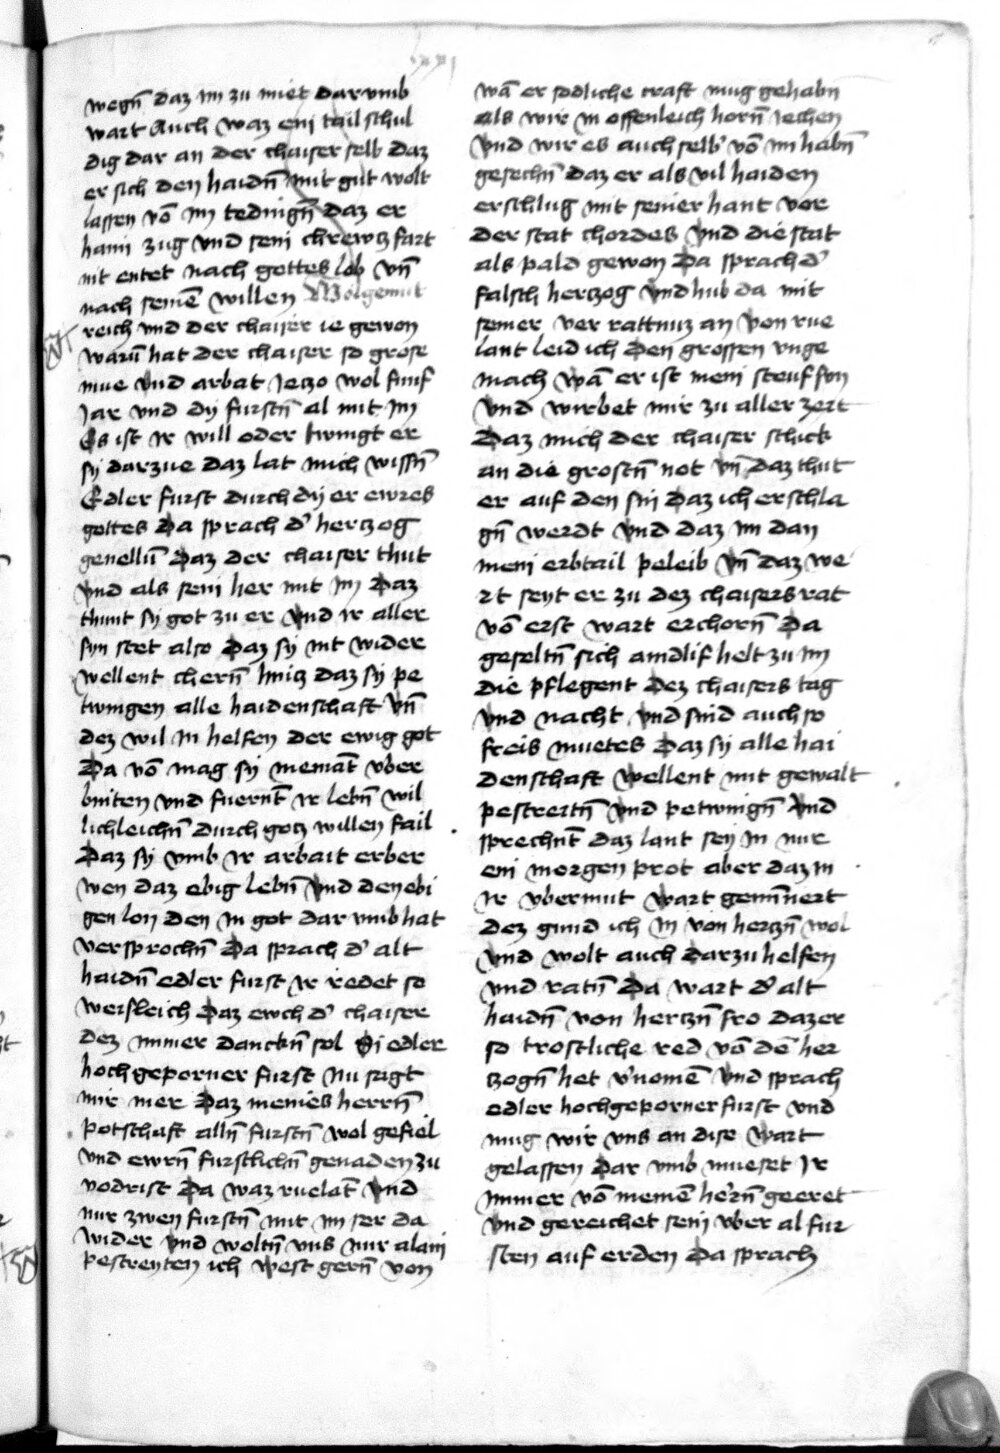 wegn̄ daz im zu miet dar vmb
wart Auch waz ein tail schul
dig dar an der chaiser selb daz
er sich den haidn̄ mit gut wolt
lassen vō im tedingn̄ daz er
haim zug vnd sein chrewtz fart
nit entet nach gottes lob vn̄
nach seinē willen Wolgemut
reich vnd der chaiser ie gewon
warūm hat der chaiser so grose
mue vnd arbat Jetzo wol funf
Jar vnd dy furstn̄ al mit im
Es ist ir will oder twingt er
sy darzue daz lat mich wissn̄
Edler furst durch dy er ewres
gottes Da sprach d' hertzog
genellūn Daz der chaiser thut
vnd als sein her mit im Daz
thunt sy got zu er vnd ir aller
syn stet also Daz sy nit wider
wellent chern̄ hintz daz sy pe
twingen alle haidenschaft vn̄
dez wil in helfen der ewig got
Da vō mag sy niemāt vber
bniten vnd fuernt ir lebn̄ wil
lichleichn̄ durch gotz willen fail
Daz sy vmb ir arbait erber
wen daz ebig lebn̄ vnd den ebi
gen lon den in got dar vmb hat
versprochn̄ Da sprach d' alt
haidn̄ edler furst ir redet so
weisleich Daz ewch d' chaiser
dez immer danckn̄ sol Si edler
hoch geporner furst Nu sagt
mir mer Daz meines herrn̄
potschaft alln̄ furstn̄ wol gefiel
vnd ewrn̄ furstlichn̄ genaden zu
vodrist Da waz ruelāt vnd
nur zwen furstn̄ mit im ser da
wider vnd woltn̄ vns nur alain
pestreyten ich west gern̄ von
wā er sodliche craft mug gehabn
als wir in offenleich horn̄ Jechen
vnd wir es auch selb' vō im habn̄
gesechn̄ daz er als vil haiden
erschlug mit seiner hant vor
der stat chordes vnd die stat
als pald gewon Da sprach d'
falsch hertzog vnd hub da mit
seiner ver rattnuz an von rue
lant leid ich den grossen vnge
mach wā er ist mein steuf sun
vnd wirbet mir zu aller zert
Daz mich der chaiser schick
an die grostn̄ not vn̄ daz thut
er auf den sin daz ich erschla
gn̄ werdt vnd daz im dan
mein erbtail peleib vn̄ daz we
rt seyt er zu dez chaisers rat
vō erst wart erchorn̄ Da
geseltn̄ sich aindlif helt zu im
die pflegent dez chaisers tag
vnd nacht vnd sind auch so
freis muetes Daz sy alle hai
denschaft wellent mit gewalt
pestreitn̄ vnd petwingn̄ vnd
sprechn̄t daz lant sey in nur
ein morgen prot aber daz in
ir vbermut wart gemīnert
dez gund ich in von hertzn̄ wol
vnd wolt auch darzu helfen
vnd ratn̄ Da wart d' alt
haidn̄ von hertzn̄ fro daz er
so trostliche red vō dē her
tzogn̄ het v'nomē vnd sprach
edler hochgeporner furst vnd
mug wir vns an dise wart
gelassen Dar vmb mueset ir
immer vō meinē hern̄ geeret
vnd gereichet sein vber al fur
sten auf erden Da sprach